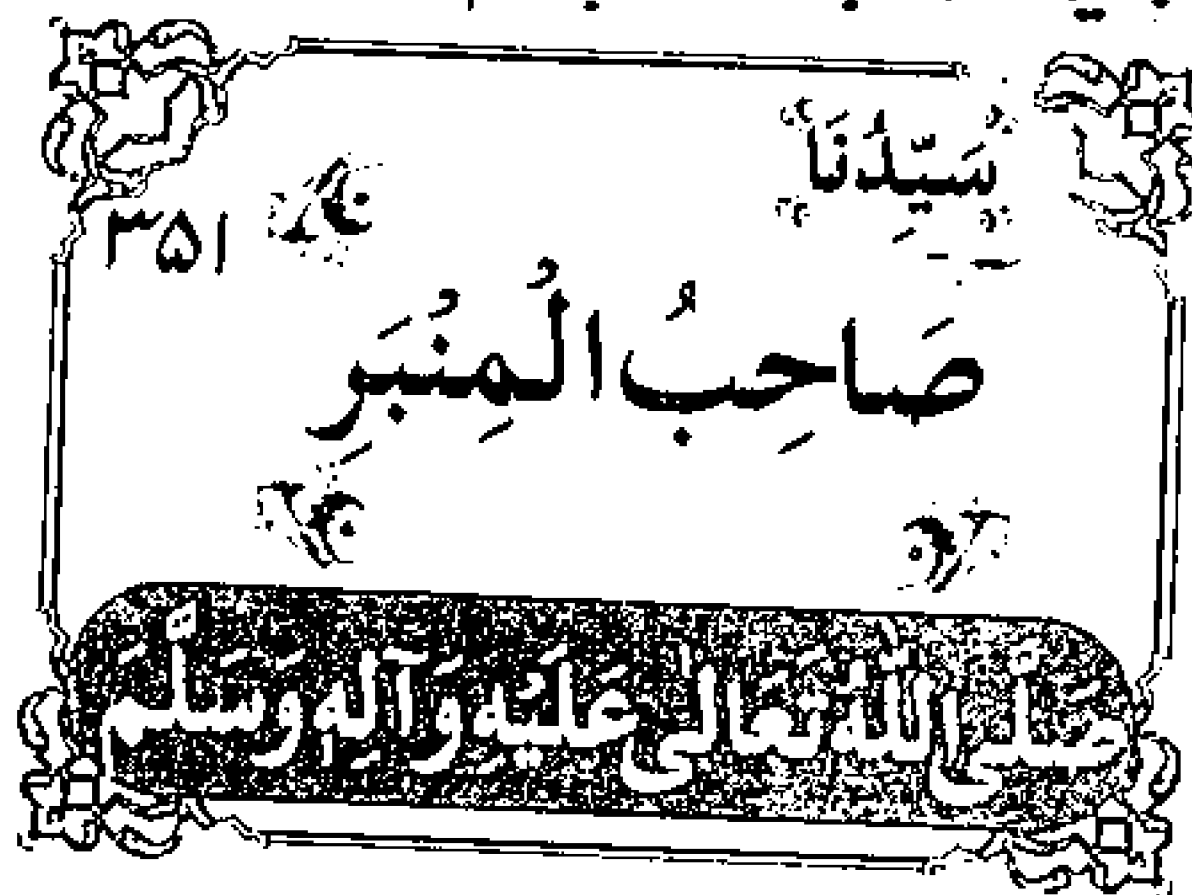 سَيِّدُنَا
۳۵۱
صَاحِبُ الْمِنْبَرِ
صَلَّى اللّٰهُ تَعَالٰى عَلَيْهِ وَآلِهٖ وَسَلَّمَ